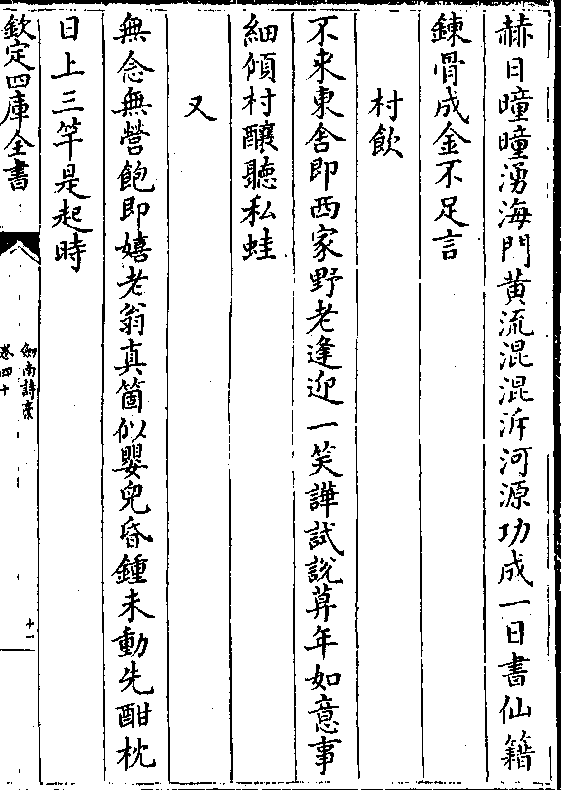 赫日曈曈湧海門黄流混混泝河源功成一日書仙籍
鍊骨成金不足言
村飲
不来東舎即西家野老逢迎一笑譁試說葬年如意事
細傾村釀聽私蛙
又
無念無營飽即嬉老翁真箇似嬰兒昏鍾未動先酣枕
日上三竿是起時
欽定四庫全書
劍南詩稾
卷四十
十一